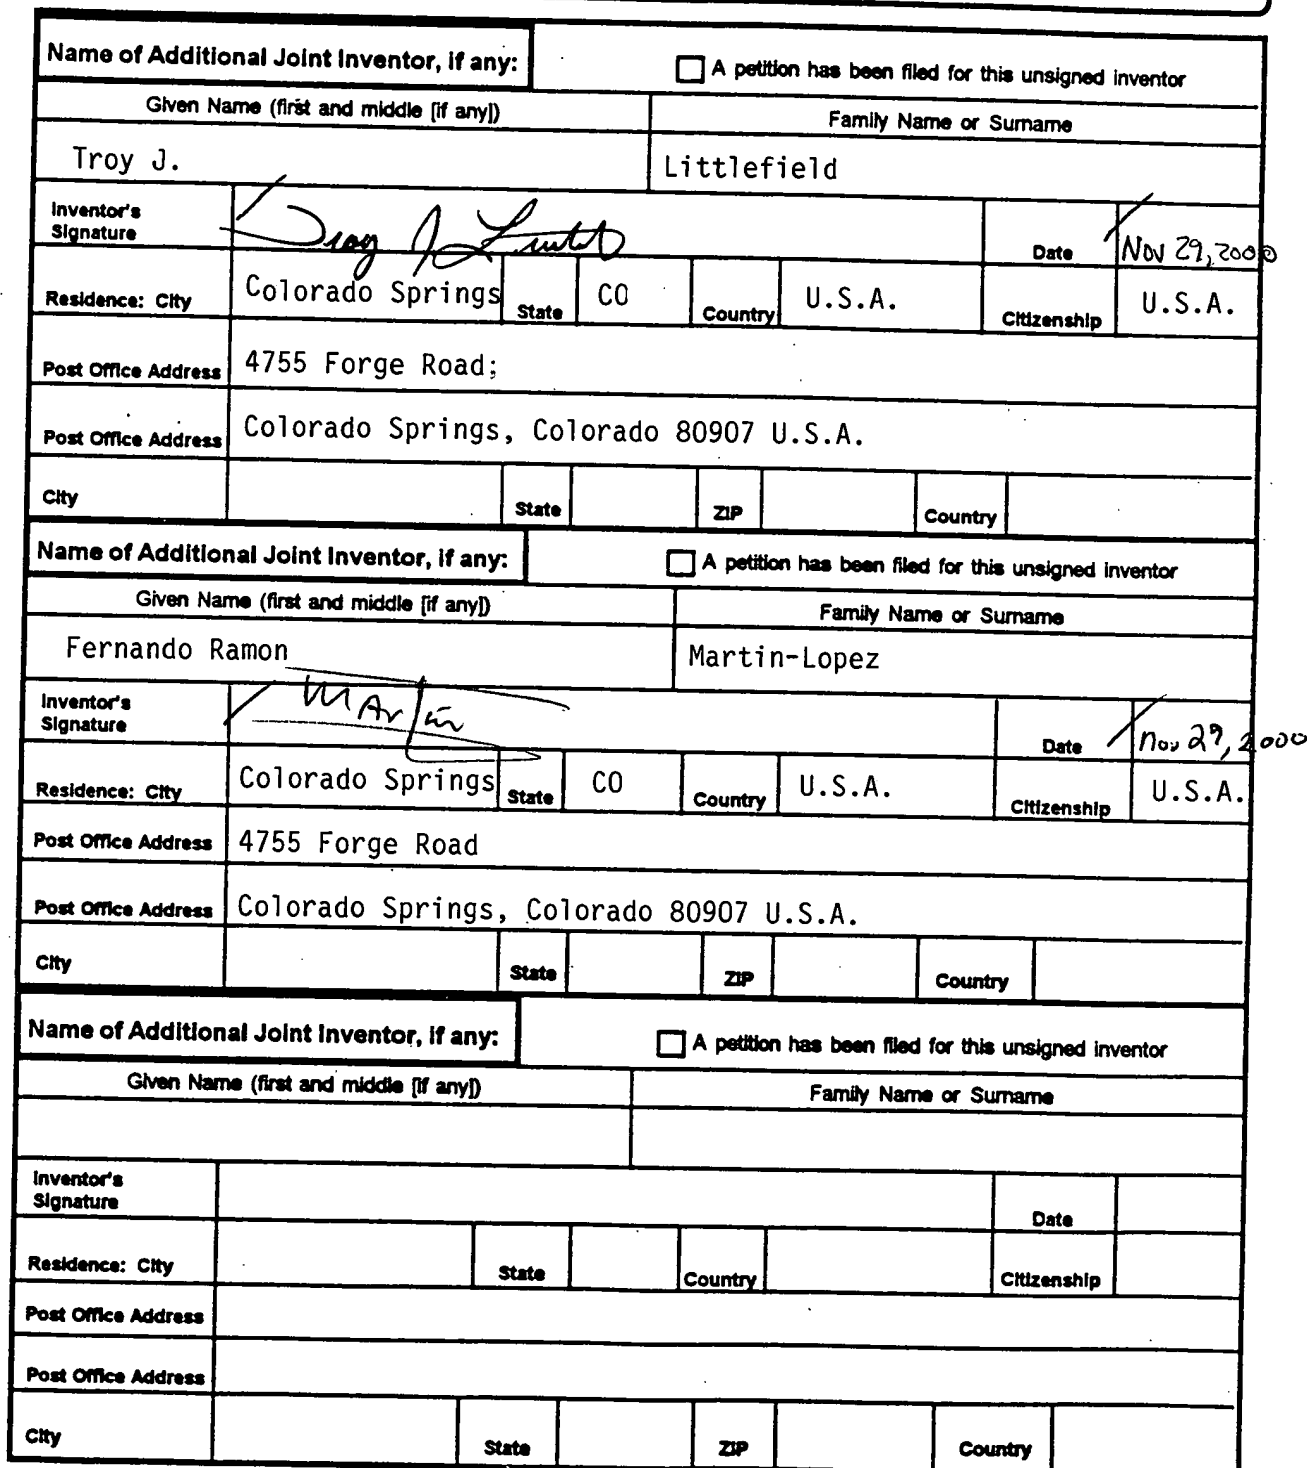 Name of Additional Joint Inventor, if any: A petition has been filed for this unsigned inventor
Given Name (first and middle [if any]) Family Name or Surname
Troy J. Littlefield
Inventor's Signature Troy J Date Nov 29, 2000
Residence: City Colorado Springs State CO Country U.S.A. Citizenship U.S.A.
Post Office Address 4755 Forge Road;
Post Office Address Colorado Springs, Colorado 80907 U.S.A.
City State ZIP Country
Name of Additional Joint Inventor, if any: A petition has been filed for this unsigned inventor
Given Name (first and middle [if any]) Family Name or Surname
Fernando Ramon Martin-Lopez
Inventor's Signature Martin Date Nov 29, 2000
Residence: City Colorado Springs State CO Country U.S.A. Citizenship U.S.A.
Post Office Address 4755 Forge Road
Post Office Address Colorado Springs, Colorado 80907 U.S.A.
City State ZIP Country
Name of Additional Joint Inventor, if any: A petition has been filed for this unsigned inventor
Given Name (first and middle [if any]) Family Name or Surname
Inventor's Signature Date
Residence: City State Country Citizenship
Post Office Address
Post Office Address
City State ZIP Country